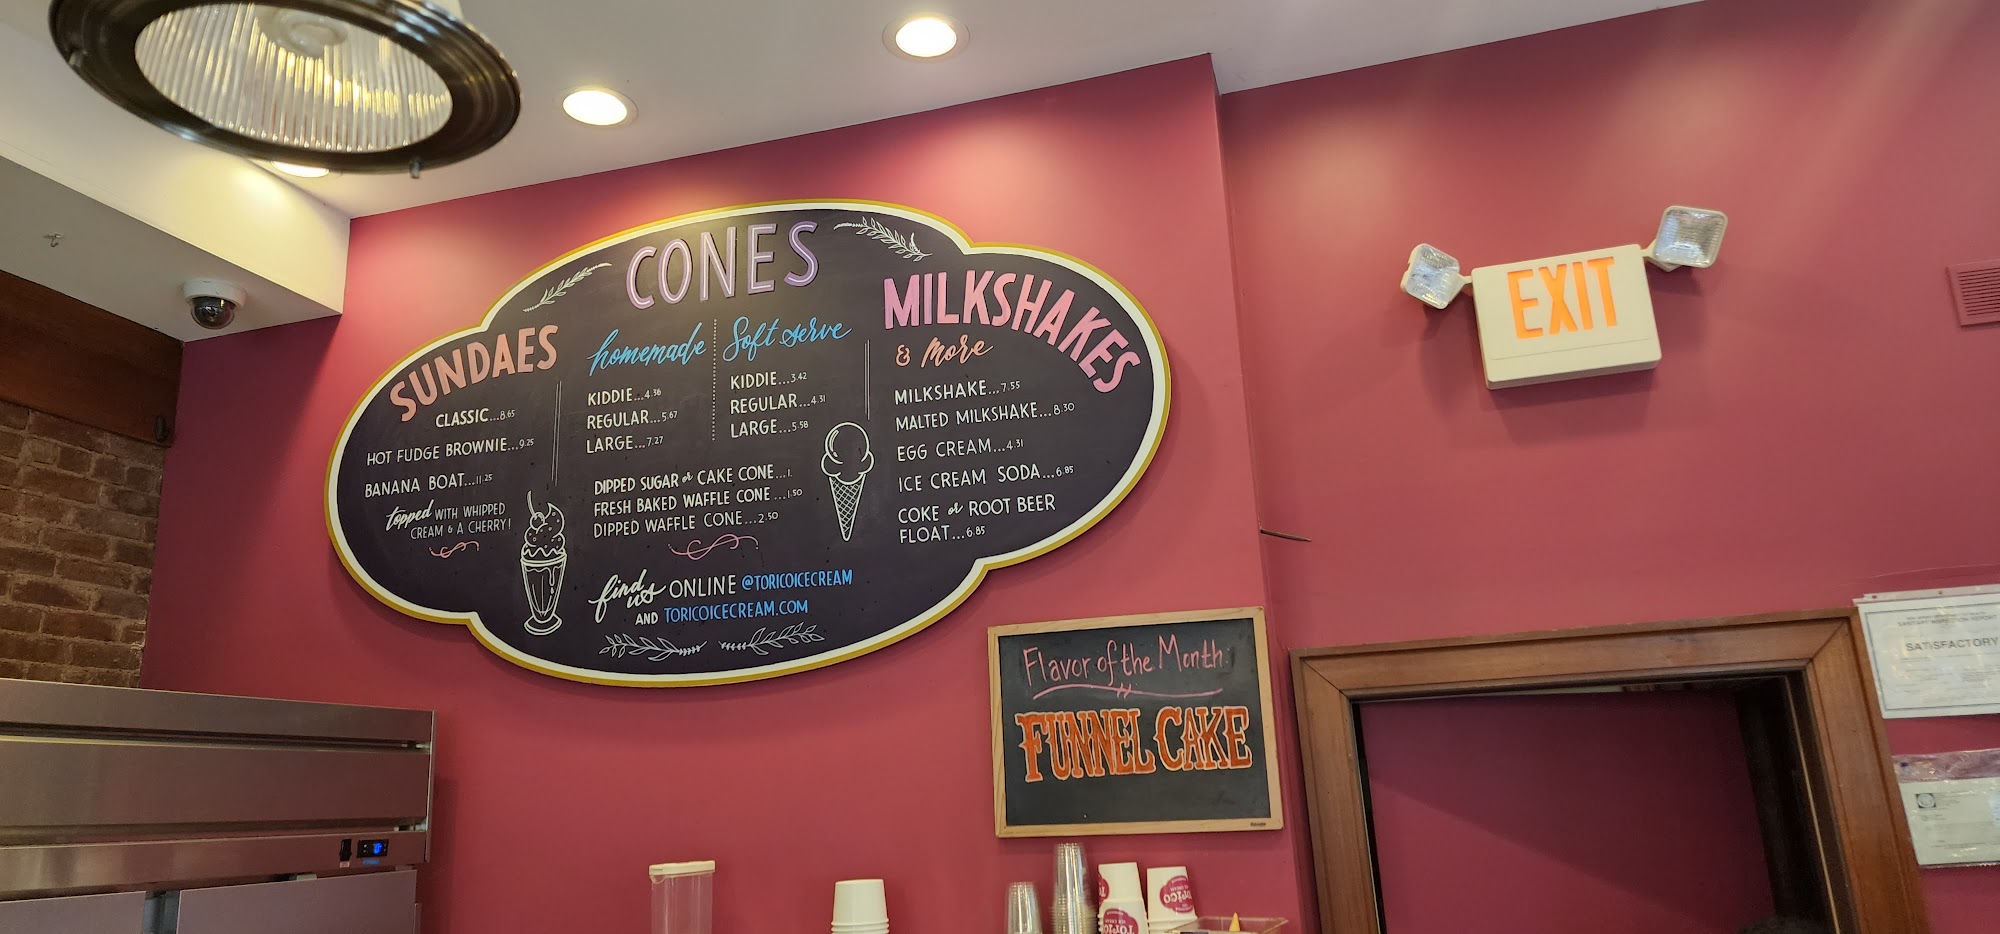 CONES
SUNDAES
CLASSIC...8.65
HOT FUDGE BROWNIE...9.25
BANANA BOAT...11.25
topped WITH WHIPPED
CREAM & A CHERRY!
homemade
KIDDIE...4.36
REGULAR...5.67
LARGE...7.27
Soft serve
KIDDIE...3.42
REGULAR...4.31
LARGE...5.58
DIPPED SUGAR or CAKE CONE...1.
FRESH BAKED WAFFLE CONE...1.50
DIPPED WAFFLE CONE...2.50
find us ONLINE @TORICOICECREAM
AND TORICOICECREAM.COM
MILKSHAKES
& more
MILKSHAKE...7.55
MALTED MILKSHAKE...8.30
EGG CREAM...4.31
ICE CREAM SODA...6.85
COKE or ROOT BEER
FLOAT...6.85
EXIT
Flavor of the Month:
FUNNEL CAKE
SANITARY INSPECTION REPORT
SATISFACTORY